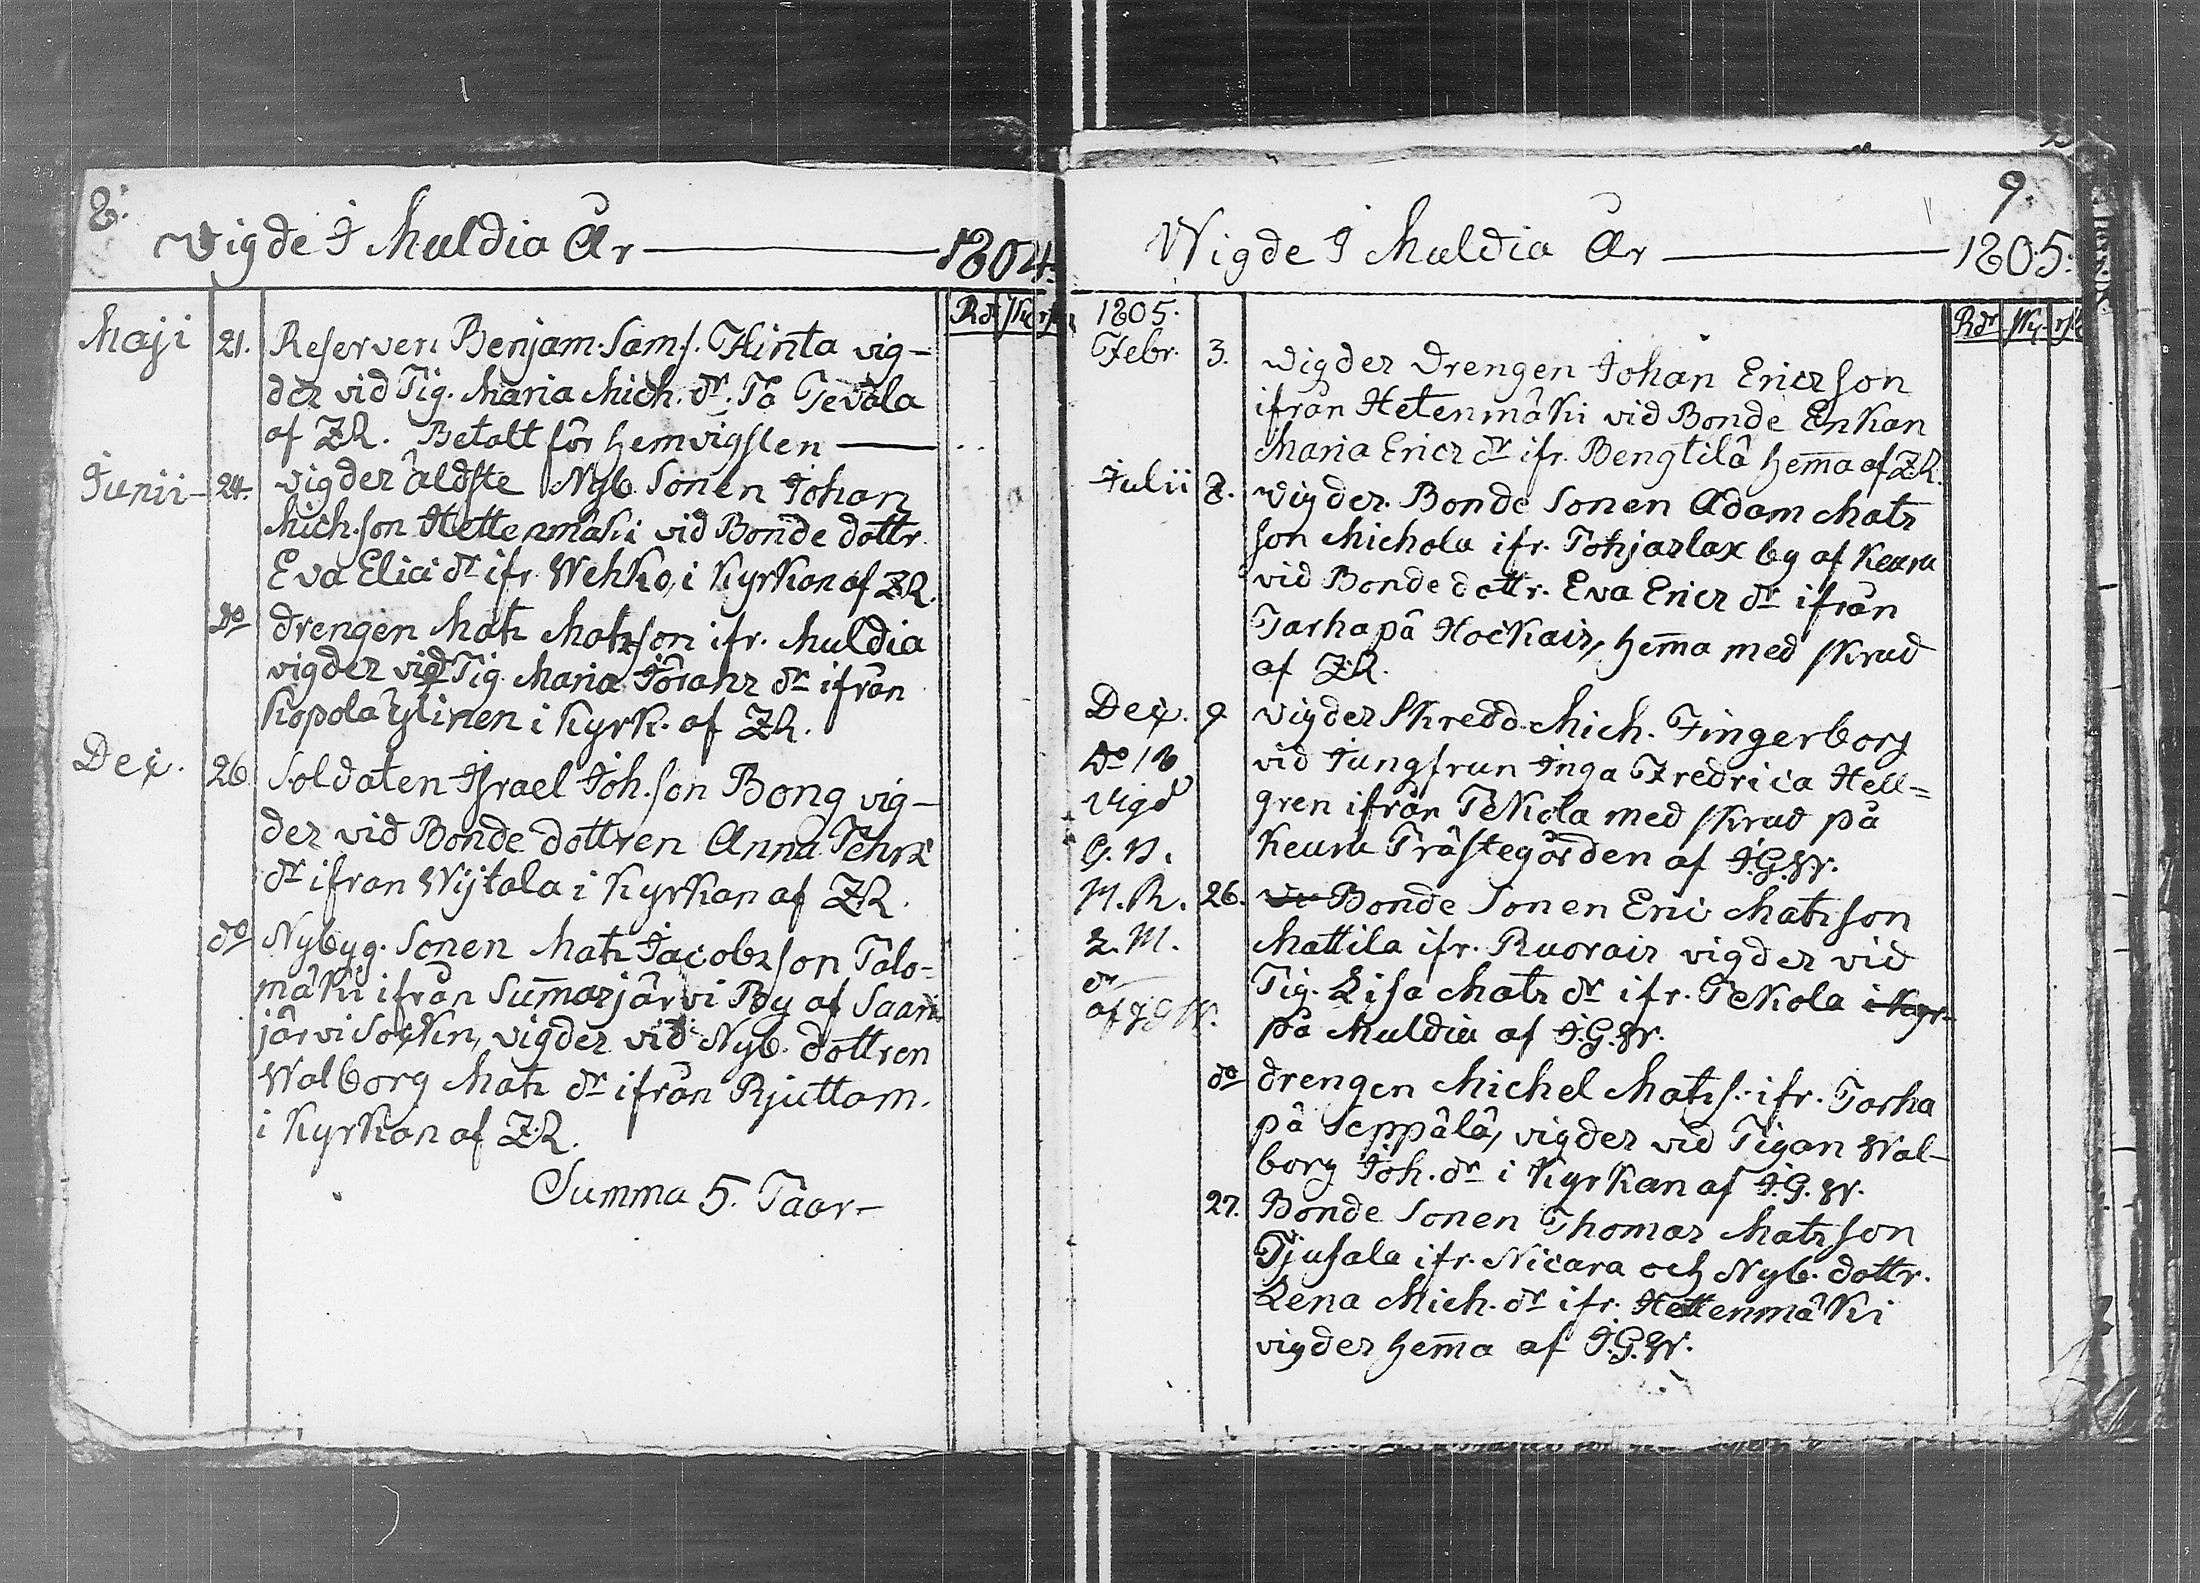 8.
Vigde I Muldia År 1804.
Rdr sk. rst
Maji 21. Reserven Benjam. Sams. Hinta vig-
des vid Pig. Maria Mich. dr. På Pevola
af ZR. Betalt för Hemvigslen
Junii 24. Vigdes äldste Nyb. Sonen Johan
Mich.son Hettenmäki vid Bonde dottr.
Eva Elici dr ifr. Wehko, i Kyrkan af ZR.
do drengen Mats Matsson ifr. Muldia
vigdes vid Pig. Maria Jörans dr ifrån
Kopola Ylinen i Kyrk. af ZR.
Dec. 26. Soldaten Israel Joh.son Bong vig-
des vid Bonde dottren Anna Pehrs
dr ifran Wijtala i Kyrkan af ZR.
do Nybyg. Sonen Mats Jacobsson Talo-
mäki ifrån Sum̄asjärvi By af Saari
järvi Sockn, vigdes vid Nyb. dottren
Walborg Mats dr ifrån Riuttam.
i Kyrkan af ZR.
Summa 5. Paar
9.
Wigde I Muldia År 1805.
Rdr sk. rst
1805.
Febr. 3. Vigdes Drengen Johan Ericsson
ifrån Hetenmäki vid Bonde Enkan
Maria Erics dr ifr. Bengtilä hem̄a af ZR.
Julii 8. Vigdes Bonde Sonen Adam Mats
son Michola ifr. Pohjaslax by af Keuru
vid Bonde dottr. Eva Erics dr ifrån
Tarha på Hockais, hem̄a med skrud
af ZR.
Dec. 9. Vigdes Skredd. Mich. Fingerborg
vid Jungfrun Inga Fredrica Hell=
gren ifrån Pekola med skrud på
Keuru Prästegården af I.G.W.
do 18
Vigd
G. N.
M. R.
L. M.
dr
af I G W.
26. Vi Bonde Sonen Eric Matsson
Mattila ifr. Ruorais vigdes vid
Pig. Lisa Mats dr ifr. Pekola i Kyr-
på Muldia af I.G.W.
do drengen Michel Mats s. ifr. Tarha
på Seppälä, vigdes vid Pigan Wal-
borg Joh. dr i Kyrkan af I.G.W.
27. Bonde Sonen Thomas Matsson
Tjusala ifr. Nicara och Nyb. dottr.
Lena Mich. dr ifr. Hettenmäki
vigdes hem̄a af I.G.W.